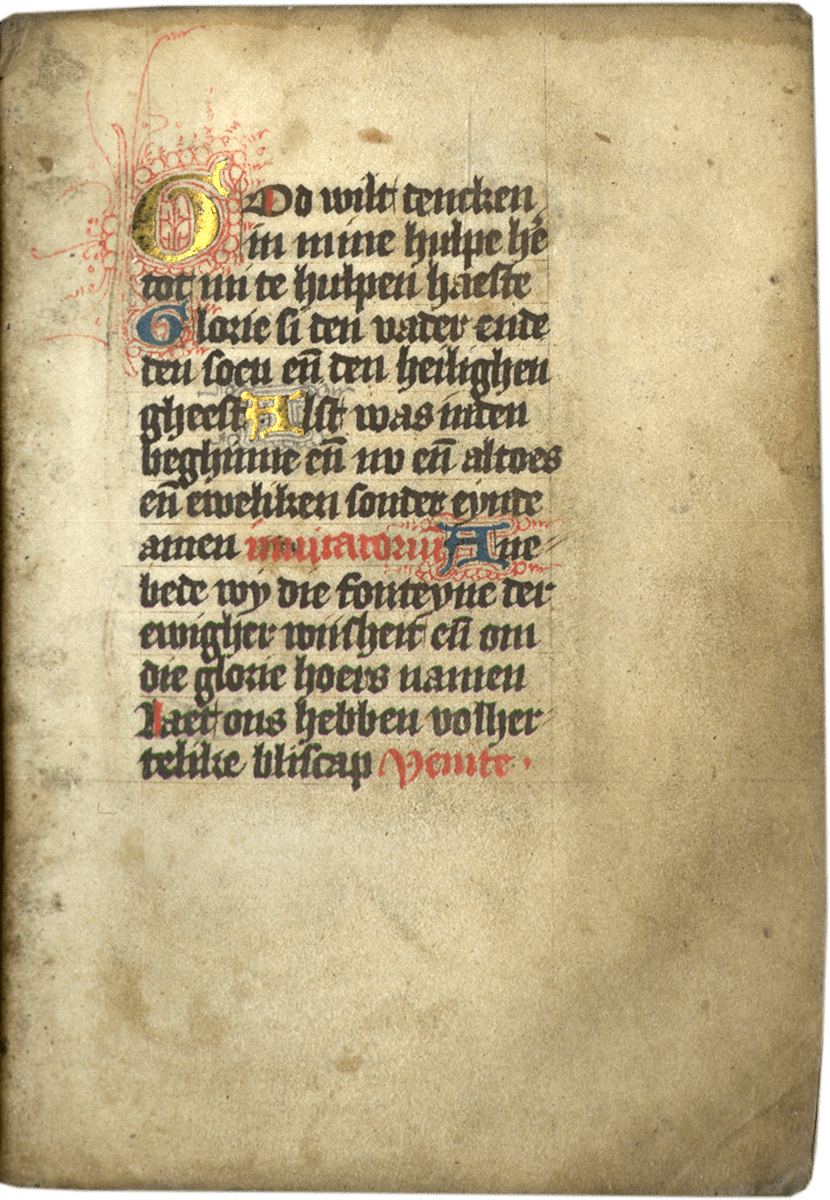 GOd wilt dencken
in mine hulpe hē
tot mi te hulpen haeste
Glorie si den vader ende
den soen eñ den heilighen
gheest Alst was inden
beghinne eñ nv eñ altoes
eñ eweliken sonder eynde
amen inuitatoriū Ane
bede wy die fonteyne der
ewigher wijsheit eñ om
die glorie hoers namen
Laet ons hebben volher
telike bliscap Venite ·